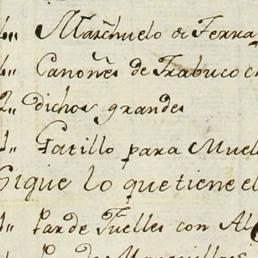 Marchuelo de Ferra
Cañones de Trabuco c
2,, dichos grandes
Gatillo para Muel
Sigue lo que tiene el
Par de Fuelles con Al